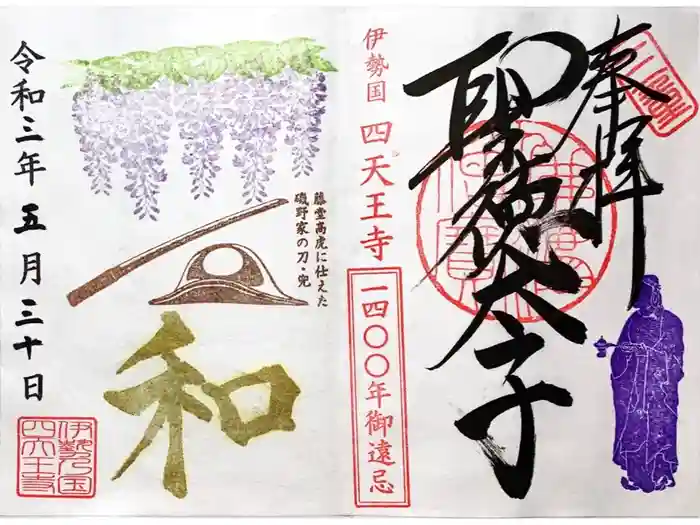 奉拝
聖徳太子
伊勢国 四天王寺
一四〇〇年御遠忌
藤堂高虎に仕えた
磯野家の刀・兜
和
令和三年五月三十日
伊勢乃国
四天王寺